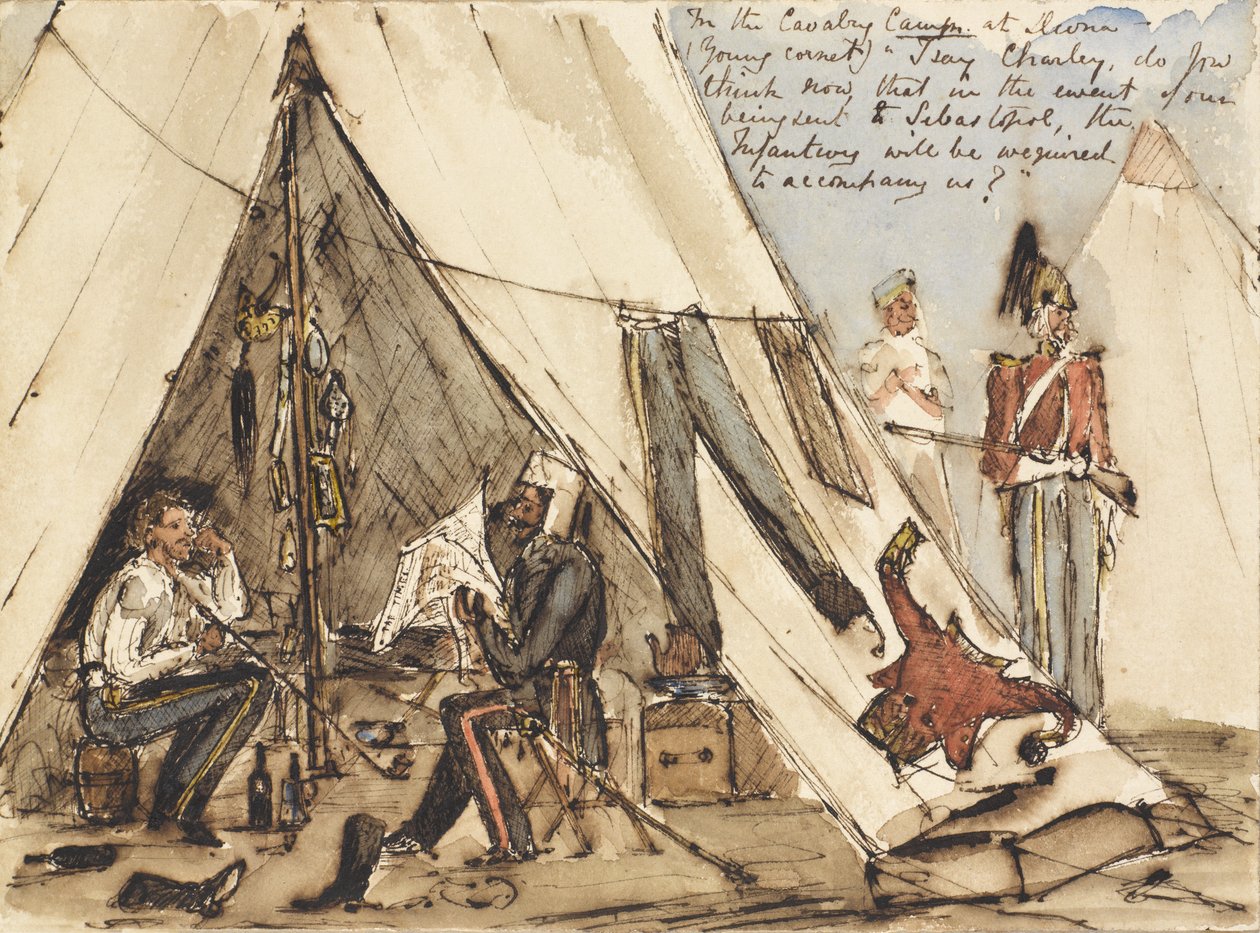 In the Cavalry Camp. at Devna —
(Young cornet) "I say Charley, do you
think now, that in the ewent of our
being sent to Sebastopol, the
Infantwy will be wequired
to accompany us?"
TIMES